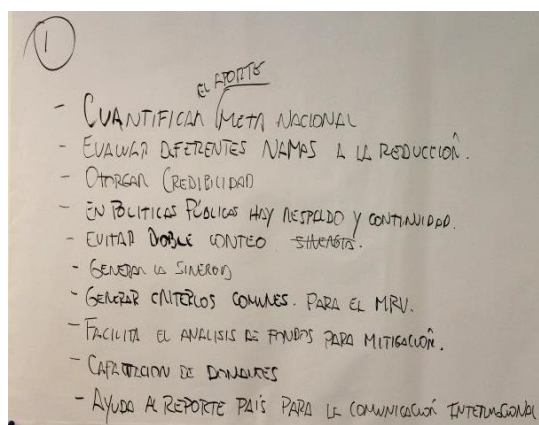 1
EL APORTE
- CUANTIFICAR META NACIONAL
- EVALUAR DIFERENTES NAMAS A LA REDUCCIÓN.
- OTORGAR CREDIBILIDAD
- EN POLITICAS PÚBLICAS HAY RESPALDO Y CONTINUIDAD.
- EVITAR DOBLE CONTEO SINERGIA.
- GENERAR LA SINERGIA
- GENERAR CRITERIOS COMUNES. PARA EL MRV.
- FACILITA EL ANALISIS DE FONDOS PARA MITIGACIÓN.
- CAPTACION DE DONANTES
- AYUDA AL REPORTE PAÍS PARA LA COMUNICACIÓN INTERNACIONAL